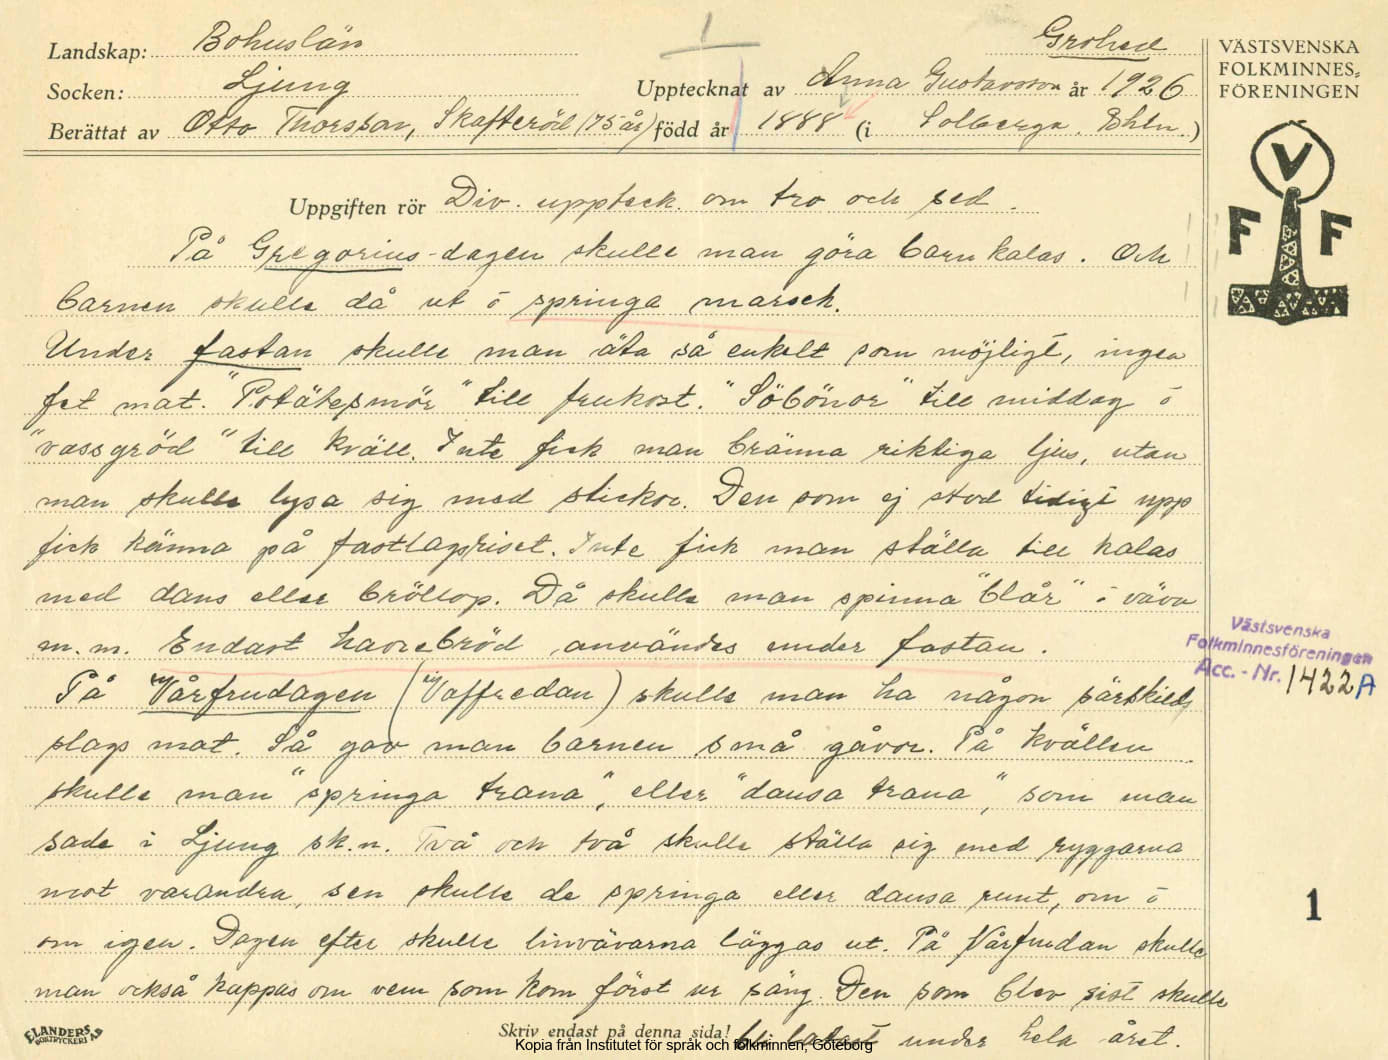 Landskap: Bohuslän
Grohed
Socken: Ljung
Upptecknat av Anna Gustavsson år 1926
Berättat av Otto Thorsson, Skafteröd (75 år) född år 1888 (i Solberga. Bhln.)
VÄSTSVENSKA
FOLKMINNES-
FÖRENINGEN
V
F F
Uppgiften rör Div. uppteck. om tro och sed.
På Gregorius-dagen skulle man göra barnkalas. Och
barnen skulle då ut ō springa marsch.
Under fastan skulle man äta så enkelt som möjligt, ingen
fet mat. "Potätesmör" till frukost. "Söbönor" till middag ō
"vassgröd" till kväll. Inte fick man bränna riktiga ljus, utan
man skulle lysa sig med stickor. Den som ej stod tidigt upp
fick känna på fastlagsriset. Inte fick man ställa till kalas
med dans eller bröllop. Då skulle man spinna "blår" ō väva
m.m. Endast havrebröd användes under fastan.
På Vårfrudagen (Vaffredan) skulle man ha någon särskild
slags mat. Så gav man barnen små gåvor. På kvällen
skulle man "springa trana", eller "dansa trana", som man
sade i Ljung sk.n. Två och två skulle ställa sig med ryggarna
mot varandra, sen skulle de springa eller dansa runt, om ō
om igen. Dagen efter skulle linvävarna läggas ut. På Vårfrudan skulle
man också kappas om vem som kom först ur säng. Den som blev sist skulle
bli latast under hela året.
Västsvenska
Folkminnesföreningen
Acc. - Nr. 1422 A
1
ELANDERS
BOKTRYCKERI A.B
Skriv endast på denna sida!
Kopia från Institutet för språk och folkminnen, Göteborg